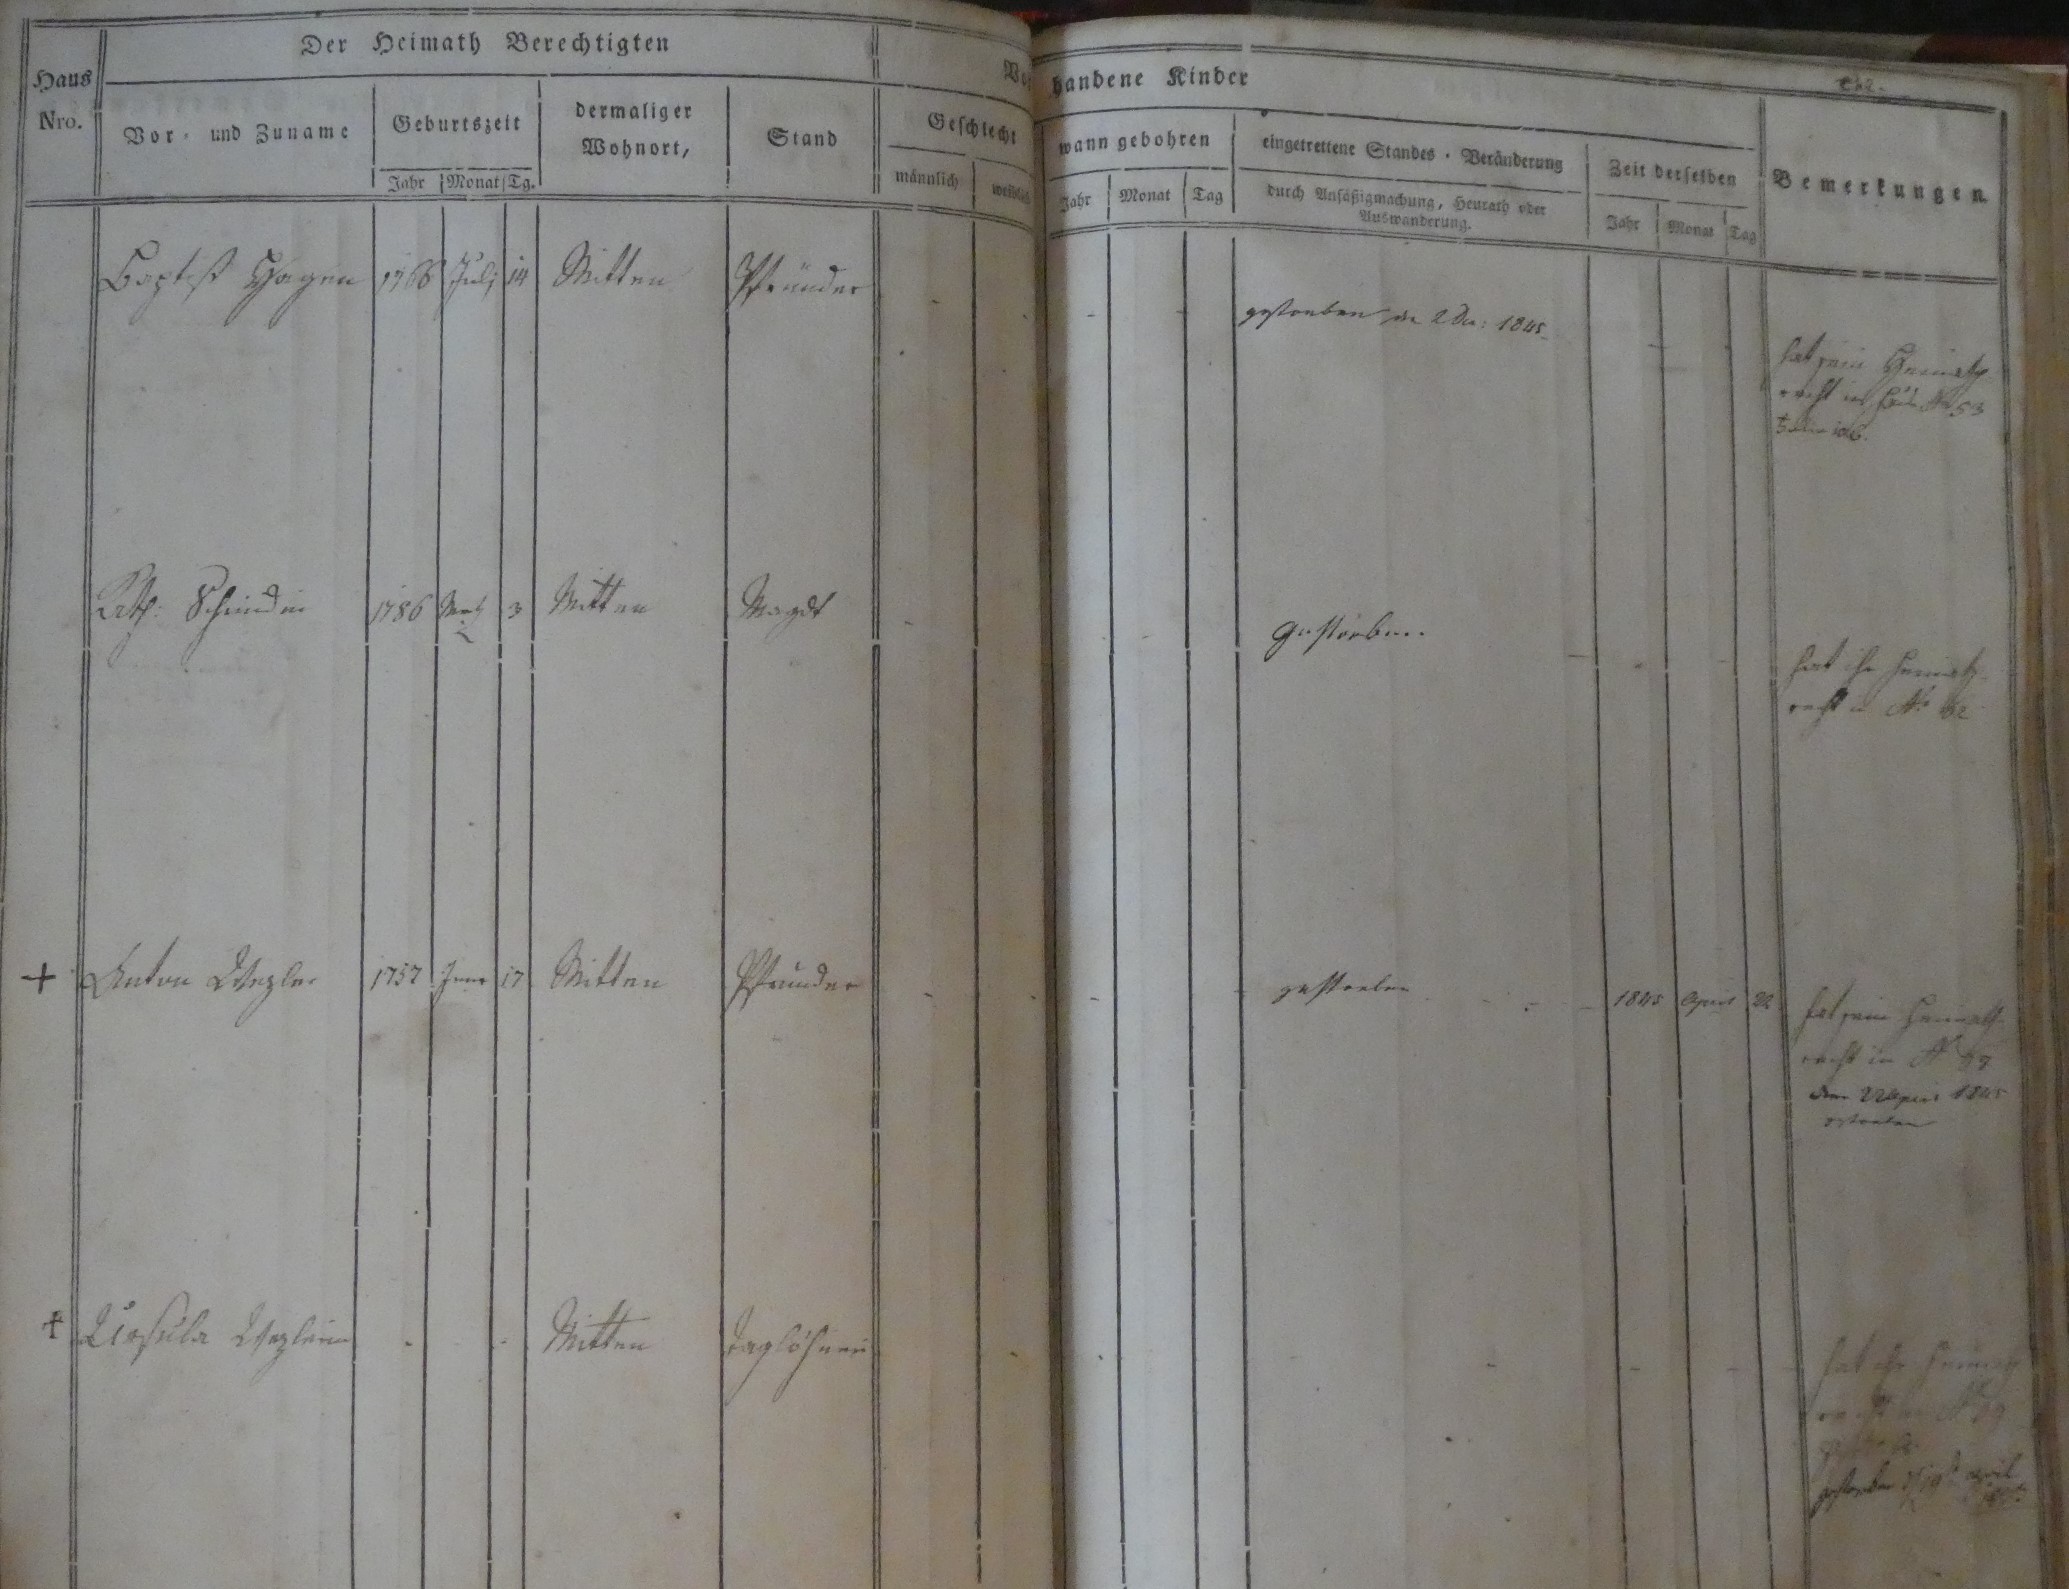 Der Heimath Berechtigten
Haus Nro.
Vor- und Zuname
Geburtszeit
Jahr Monat Tg.
dermaliger Wohnort,
Stand
Vorhandene Kinder
Geschlecht
männlich weiblich
wann gebohren
Jahr Monat Tag
eingetrettene Standes-Veränderung
durch Ansäßigmachung, Heurath oder
Auswanderung.
Zeit derselben
Jahr Monat Tag
Bemerkungen
Baptist Hagen 1766 Juli 14 Mitten Pfründer - - - gestorben den 2 Dec: 1845 -
hat sein Heimath
recht in Haus No 53
Kath: Schmidin 1786 3 Mitten Magdt - - gestorben. - - -
hat ihr Heimath
recht in No
+ Anton Wezler 1757 17 Mitten Pfründer - - - gestorben - - - 1845 April 22
hat sein Heimath
recht in No
den 22 April 1845
gestorben
+ Ursula Wezlerin - - Mitten Taglöhnerin - - - - -
hat ihr Heimath
recht in No
gestorben April